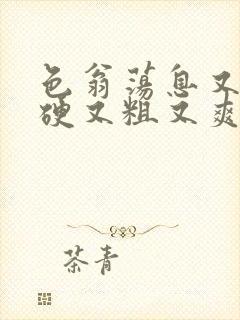 色翁荡息又
硬又粗又爽
茶青